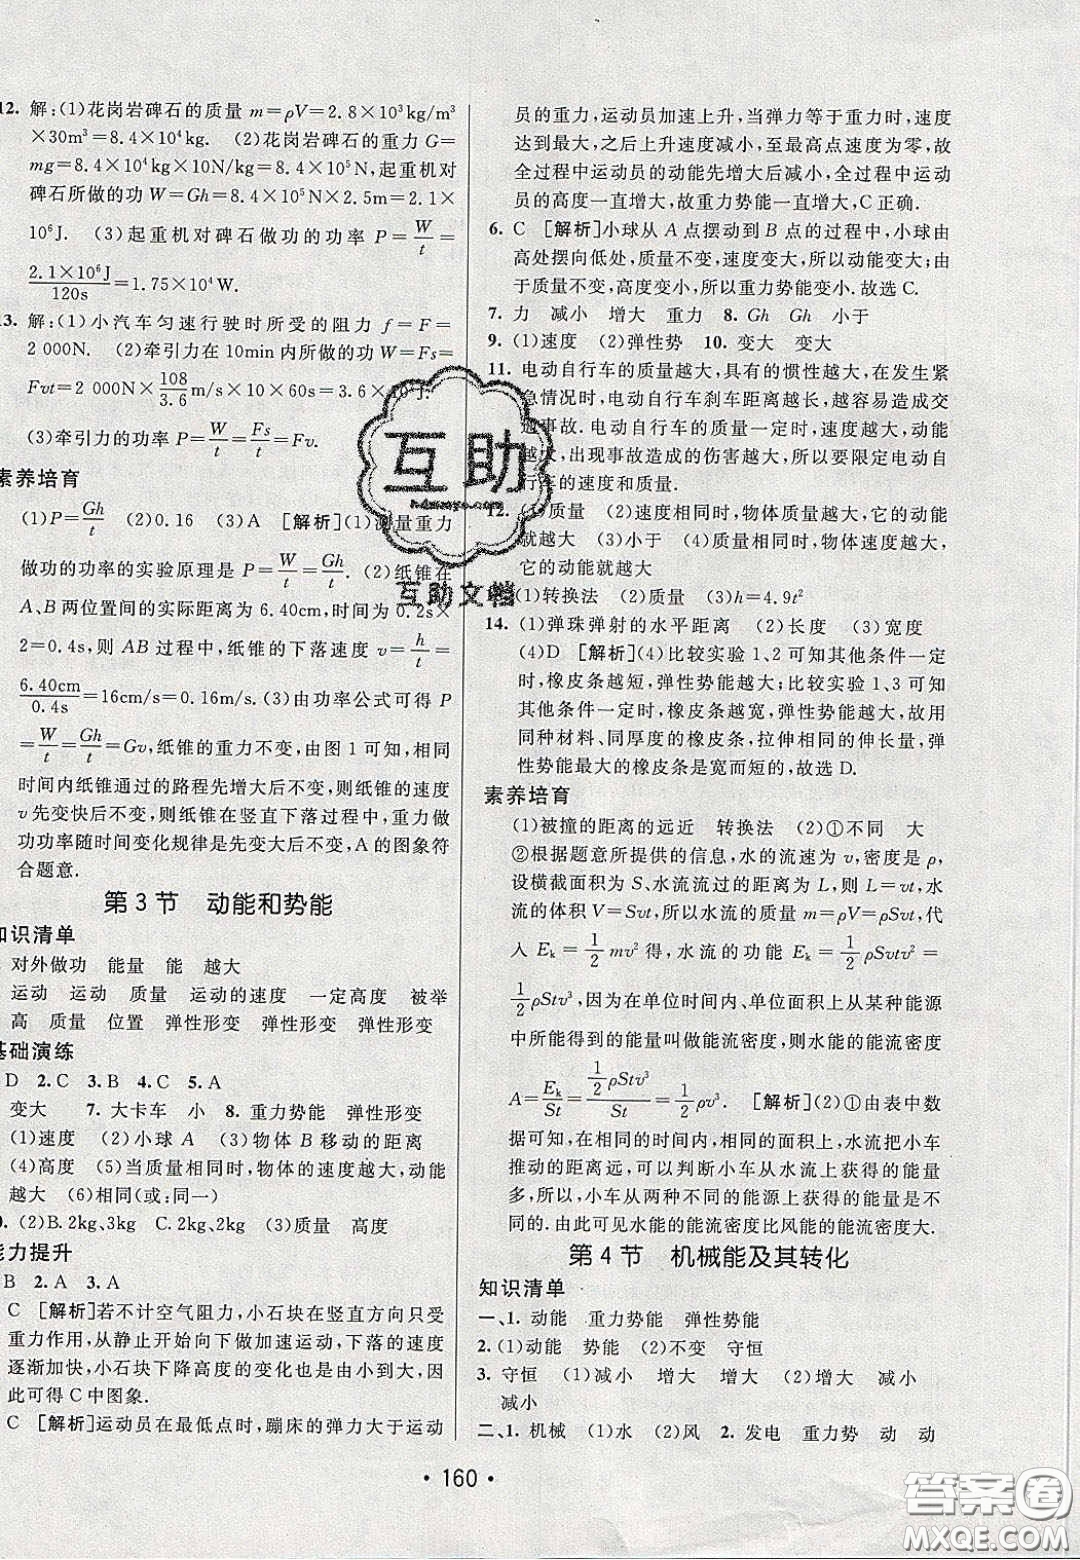 12. 解:(1)花岗岩碑石的质量 m=ρV=2.8×10³kg/m³
×30m³=8.4×10⁴kg. (2)花岗岩碑石的重力 G=
mg=8.4×10⁴kg×10N/kg=8.4×10⁵N,起重机对
碑石所做的功 W=Gh=8.4×10⁵N×2.5m=2.1×
10⁶J. (3)起重机对碑石做功的功率 P=W/t=
2.1×10⁶J/120s=1.75×10⁴W.
13. 解:(1)小汽车匀速行驶时所受的阻力 f=F=
2 000N. (2)牵引力在 10min 内所做的功 W=Fs=
Fvt=2 000N×108/3.6 m/s×10×60s=3.6×10 J.
(3)牵引力的功率 P=W/t=Fs/t=Fv.
素养培育
(1)P=Gh/t (2)0.16 (3)A [解析](1)测量重力
做功的功率的实验原理是 P=W/t=Gh/t. (2)纸锥在
A、B 两位置间的实际距离为 6.40cm,时间为 0.2s×
2=0.4s,则 AB 过程中,纸锥的下落速度 v=h/t=
6.40cm/0.4s=16cm/s=0.16m/s. (3)由功率公式可得 P
=W/t=Gh/t=Gv,纸锥的重力不变,由图 1 可知,相同
时间内纸锥通过的路程先增大后不变,则纸锥的速度
v 先变快后不变,则纸锥在竖直下落过程中,重力做
功功率随时间变化规律是先变大后不变,A 的图象符
合题意.
第 3 节 动能和势能
知识清单
对外做功 能量 能 越大
运动 运动 质量 运动的速度 一定高度 被举
高 质量 位置 弹性形变 弹性形变 弹性形变
基础演练
D 2.C 3.B 4.C 5.A
变大 7. 大卡车 小 8. 重力势能 弹性形变
(1)速度 (2)小球 A (3)物体 B 移动的距离
(4)高度 (5)当质量相同时,物体的速度越大,动能
越大 (6)相同(或:同一)
(2)B.2kg、3kg C.2kg、2kg (3)质量 高度
能力提升
B 2.A 3.A
C [解析]若不计空气阻力,小石块在竖直方向只受
重力作用,从静止开始向下做加速运动,下落的速度
逐渐加快,小石块下降高度的变化是由小到大,因
此可得 C 中图象.
C [解析]运动员在最低点时,蹦床的弹力大于运动
员的重力,运动员加速上升,当弹力等于重力时,速度
达到最大,之后上升速度减小,至最高点速度为零,故
全过程中运动员的动能先增大后减小,全过程中运动
员的高度一直增大,故重力势能一直增大,C 正确.
6. C [解析]小球从 A 点摆动到 B 点的过程中,小球由
高处摆向低处,质量不变,速度变大,所以动能变大;由
于质量不变,高度变小,所以重力势能变小.故选 C.
7. 力 减小 增大 重力 8. Gh Gh 小于
9. (1)速度 (2)弹性势 10. 变大 变大
11. 电动自行车的质量越大,具有的惯性越大,在发生紧
急情况时,电动自行车刹车距离越长,越容易造成交
通事故. 电动自行车的质量一定时,速度越大,动能
越大,出现事故造成的伤害越大,所以要限定电动
自行车的速度和质量.
12. (1)质量 (2)速度相同时,物体质量越大,它的动能
就越大 (3)小于 (4)质量相同时,物体速度越大,
它的动能就越大
(1)转换法 (2)质量 (3)h=4.9t²
14. (1)弹珠弹射的水平距离 (2)长度 (3)宽度
(4)D [解析](4)比较实验 1、2 可知其他条件一定
时,橡皮条越短,弹性势能越大;比较实验 1、3 可知
其他条件一定时,橡皮条越宽,弹性势能越大,故用
同种材料、同厚度的橡皮条,拉伸相同的伸长量,弹
性势能最大的橡皮条是宽而短的,故选 D.
素养培育
(1)被撞的距离的远近 转换法 (2)①不同 大
②根据题意所提供的信息,水的流速为 v,密度是 ρ,
设横截面积为 S、水流流过的距离为 L,则 L=vt,水
流的体积 V=Svt,所以水流的质量 m=ρV=ρSvt,代
入 Eₖ=1/2 mv² 得,水流的功能 Eₖ=1/2 ρSvtv²=
1/2 ρStv³,因为在单位时间内、单位面积上从某种能源
中所能得到的能量叫做能流密度,所以水能的能流密度
A=Eₖ/St=1/2 ρStv³/St=1/2 ρv³. [解析](2)①由表中数
据可知,在相同的时间内、相同的面积上,水流使小车
推动的距离远,可以判断小车从水流上获得的能量
多,所以,小车从两种不同的能源上获得的能量是不
同的.由此可见水能的能流密度比风能的能流密度大.
第 4 节 机械能及其转化
知识清单
一、1. 动能 重力势能 弹性势能
2. (1)动能 势能 (2)不变 守恒
3. 守恒 (1)减小 增大 增大 (2)增大 减小
减小
二、1. 机械 (1)水 (2)风 2. 发电 重力势 动 动
• 160 •
互助
互助文档
答案圈
MXQE.COM